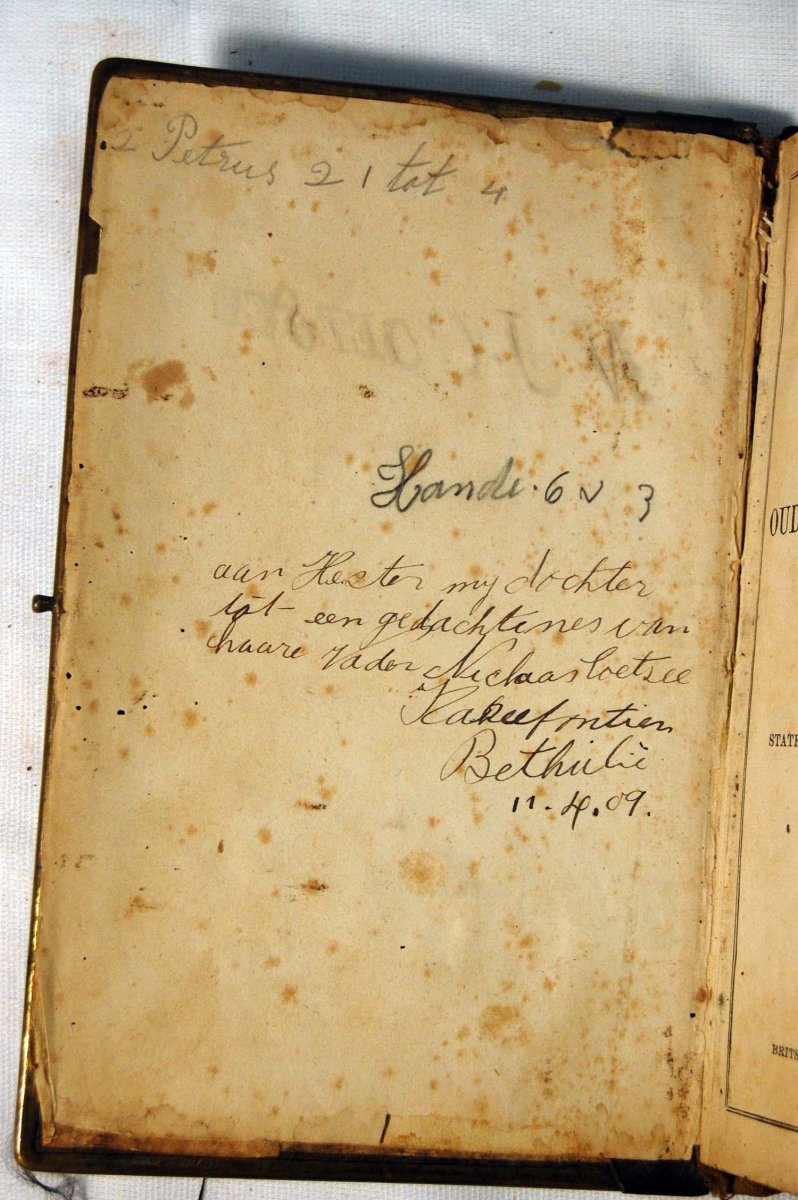 2 Petrus 2 1 tot 4
Hande. 6 v 3
aan Hester my dochter
tot een gedachtenes van
haare vader Niclaas Coetsee
Bethulie
11.4.09.
1
OUD
STATE
BRITS